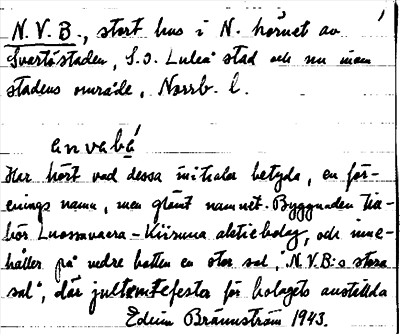 N.V.B., stort hus i N. hörnet av
Svartöstaden, S.O. Luleå stad och nu inom
stadens område, Norrb. l.
envebé
Har hört vad dessa initialer betyda, en för-
enings namn, men glömt namnet. Byggnaden till-
hör Luossavaara-Kiiruna aktiebolag, och inne-
håller på nedre botten en stor sal, "N.V.B:s stora
sal", där jultomtefester för bolagets anställda
Edvin Brännström 1943.